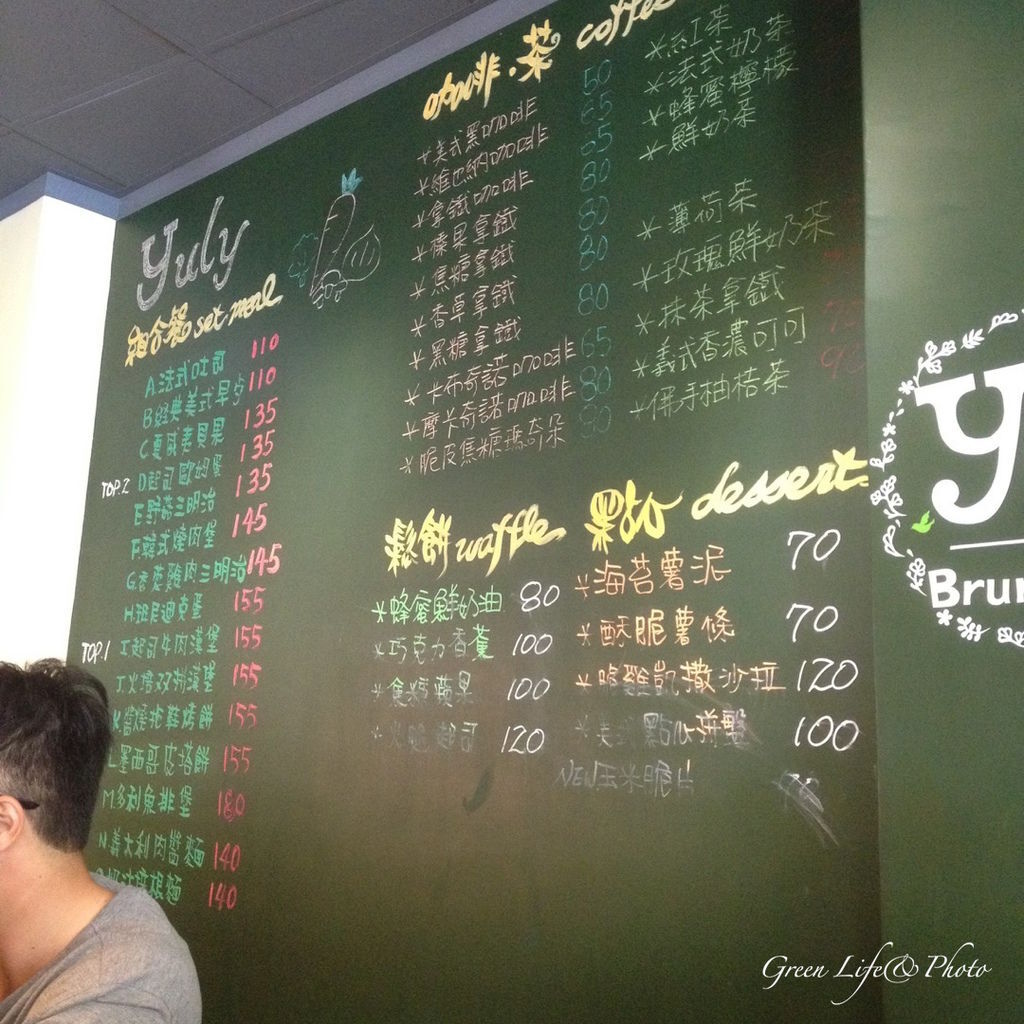 yuly
組合餐 set meal
A.法式吐司 110
B.經典美式早午 110
C.夏威夷貝果 135
TOP.2 D.起司歐姆蛋 135
E.野菇三明治 135
F.韓式燒肉堡 145
G.香蔥雞肉三明治 145
H.班尼迪克蛋 155
TOP.1 I.起司牛肉漢堡 155
J.火培双漢堡 155
烤餅 155
L.墨西哥皮塔餅 155
M.多利魚排堡 180
N.義大利肉醬麵 140
培根麵 140
咖啡.茶 coffee
*美式黑咖啡 50
*維也納咖啡 65
*拿鐵咖啡 65
*榛果拿鐵 80
*焦糖拿鐵 80
*香草拿鐵 80
*黑糖拿鐵 80
*卡布奇諾咖啡 65
*摩卡奇諾咖啡 80
*脆皮焦糖瑪奇朵 80
*紅茶
*法式奶茶
*蜂蜜檸檬
*鮮奶茶
*薄荷茶
*玫瑰鮮奶茶
*抹茶拿鐵
*義式香濃可可
*佛手柚桔茶
鬆餅 waffle
*蜂蜜鮮奶油 80
*巧克力香蕉 100
*焦糖蘋果 100
*火腿起司 120
點心 dessert
*海苔薯泥 70
*酥脆薯條 70
*脆雞凱撒沙拉 120
*美式點心拼盤 100
NEW玉米脆片
y
Brun
Green Life@Photo